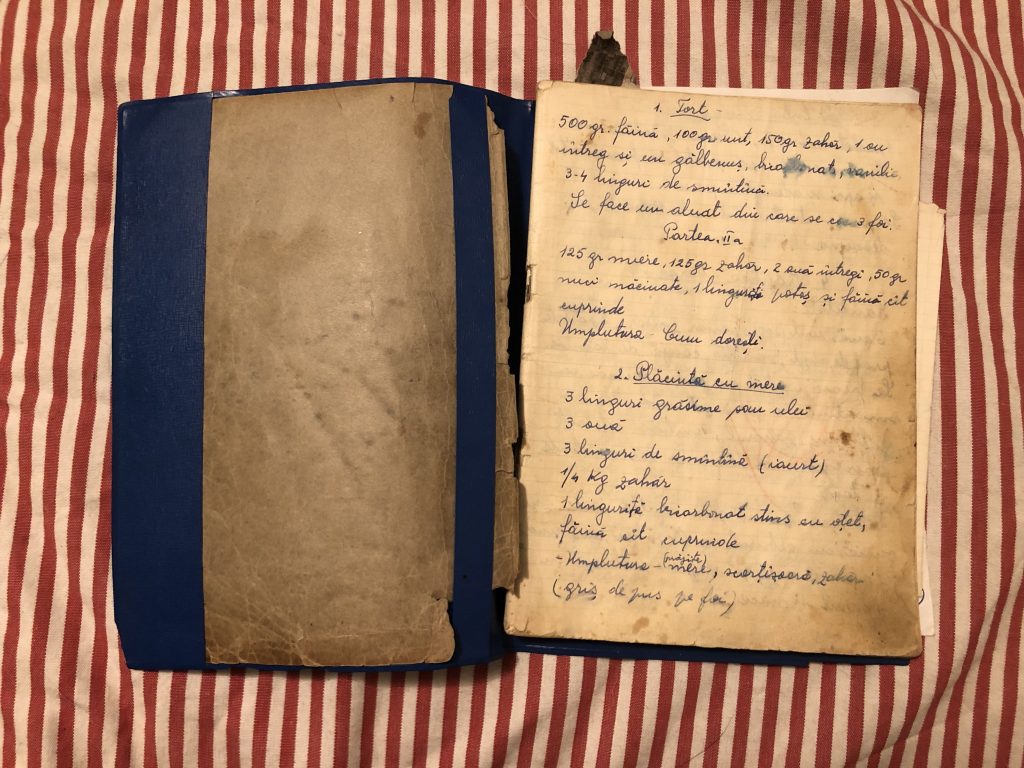 1. Tort -
500 gr. făină, 100 gr unt, 150 gr zahăr, 1 ou
întreg și un gălbenuș, bicarbonat, vanilie
3-4 linguri de smîntînă.
Se face un aluat din care se coc 3 foi.
Partea. II a
125 gr miere, 125 gr zahăr, 2 ouă întregi, 50 gr
nuci măcinate, 1 linguriță potaș, și făină cît
cuprinde
Umplutura - Cum dorești.
2. Plăcintă cu mere
3 linguri grăsime sau ulei
3 ouă
3 linguri de smîntînă (iaurt)
1/4 Kg zahăr
1 linguriță bicarbonat stins cu oțet,
făină cît cuprinde
- Umplutura - (prăjite) mere, scorțișoară, zahăr
(griș de pus pe foi)